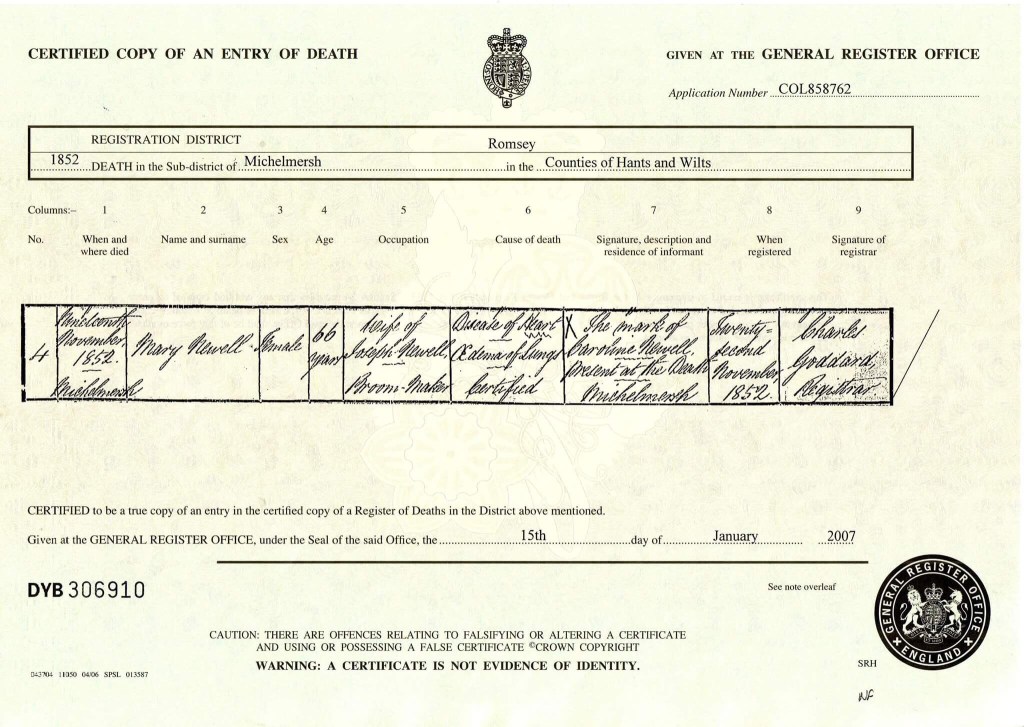 CERTIFIED COPY OF AN ENTRY OF DEATH
GIVEN AT THE GENERAL REGISTER OFFICE
Application Number COL858762
REGISTRATION DISTRICT Romsey
1852 DEATH in the Sub-district of Michelmersh in the Counties of Hants and Wilts
Columns:– 1 2 3 4 5 6 7 8 9
No. When and where died Name and surname Sex Age Occupation Cause of death Signature, description and residence of informant When registered Signature of registrar
4
Nineteenth
November
1852.
Michelmersh
Mary Newell
Female
66
years
Wife of
Joseph Newell,
Broom-Maker
Disease of Heart
Œdema of Lungs
Certified
X The mark of
Caroline Newell,
Present at the Death
Michelmersh
Twenty-
second
November,
1852.
Charles
Goddard,
Registrar
CERTIFIED to be a true copy of an entry in the certified copy of a Register of Deaths in the District above mentioned.
Given at the GENERAL REGISTER OFFICE, under the Seal of the said Office, the 15th day of January 2007
DYB 306910
See note overleaf
CAUTION: THERE ARE OFFENCES RELATING TO FALSIFYING OR ALTERING A CERTIFICATE
AND USING OR POSSESSING A FALSE CERTIFICATE ©CROWN COPYRIGHT
WARNING: A CERTIFICATE IS NOT EVIDENCE OF IDENTITY.
GENERAL REGISTER OFFICE
ENGLAND
043704 11050 04/06 SPSL 013587
SRH